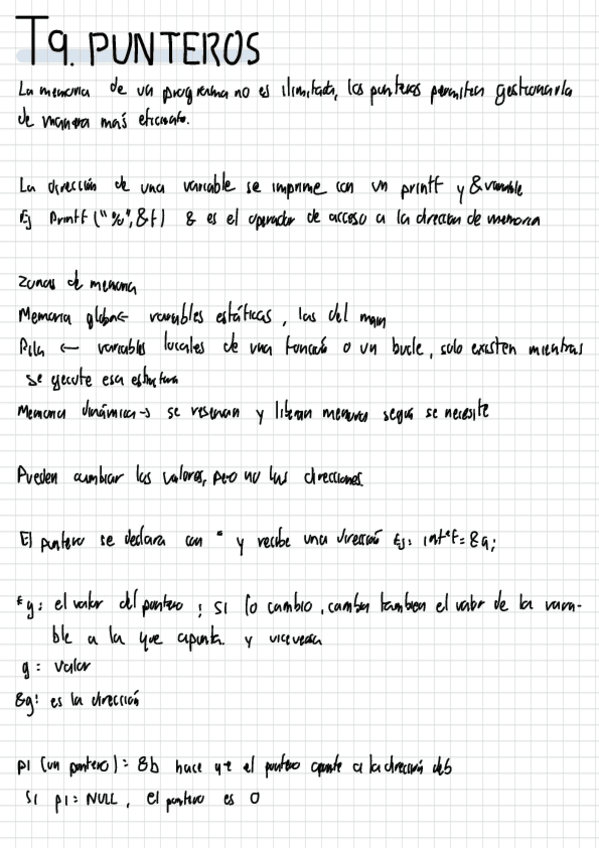 T9. PUNTEROS
La memoria de un programa no es ilimitada, los punteros permiten gestionarla
de manera más eficiente.
La dirección de una variable se imprime con un printf y &variable
Ej Printf ("%", &f) & es el operador de acceso a la dirección de memoria
Zonas de memoria
Memoria global ← variables estáticas, las del main
Pila ← variables locales de una función o un bucle, solo existen mientras
se ejecute esa estructura
Memoria dinámica → se reservan y liberan memoria según se necesite
Pueden cambiar los valores, pero no las direcciones.
El puntero se declara con * y recibe una dirección Ej: int*f=&a;
*g: el valor del puntero; si lo cambio, cambia tambien el valor de la varia-
ble a la que apunta. y viceversa
g: valor
&g: es la dirección
p1 (un puntero) = &b hace que el puntero apunte a la dirección de b
Si p1 = NULL, el puntero es 0